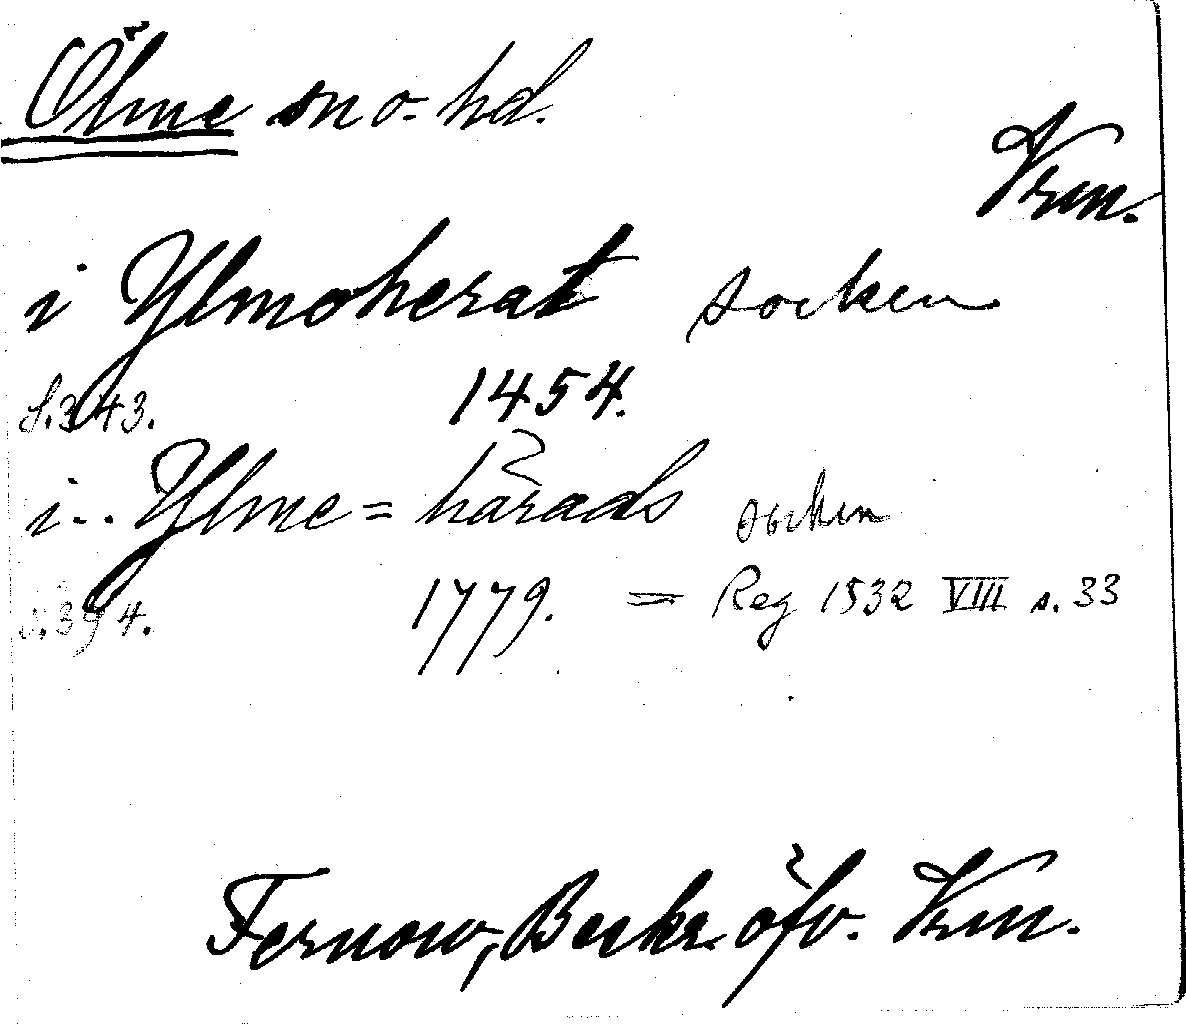 Ölme sn o. hd.
Vrm.
i Ylmoherat socken
s. 343. 1454.
i.. Ylme = härads socken
s. 394. 1779. = Reg 1532 VIII s. 33
Fernow, Beskr. öfv. Vrm.